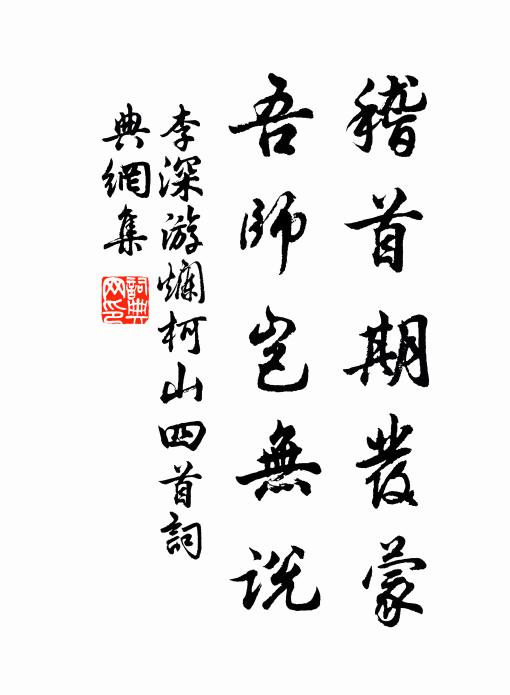 稽首期發蒙
吾師豈無説
李深游爛柯山四首詞
典網集
詞典
网印